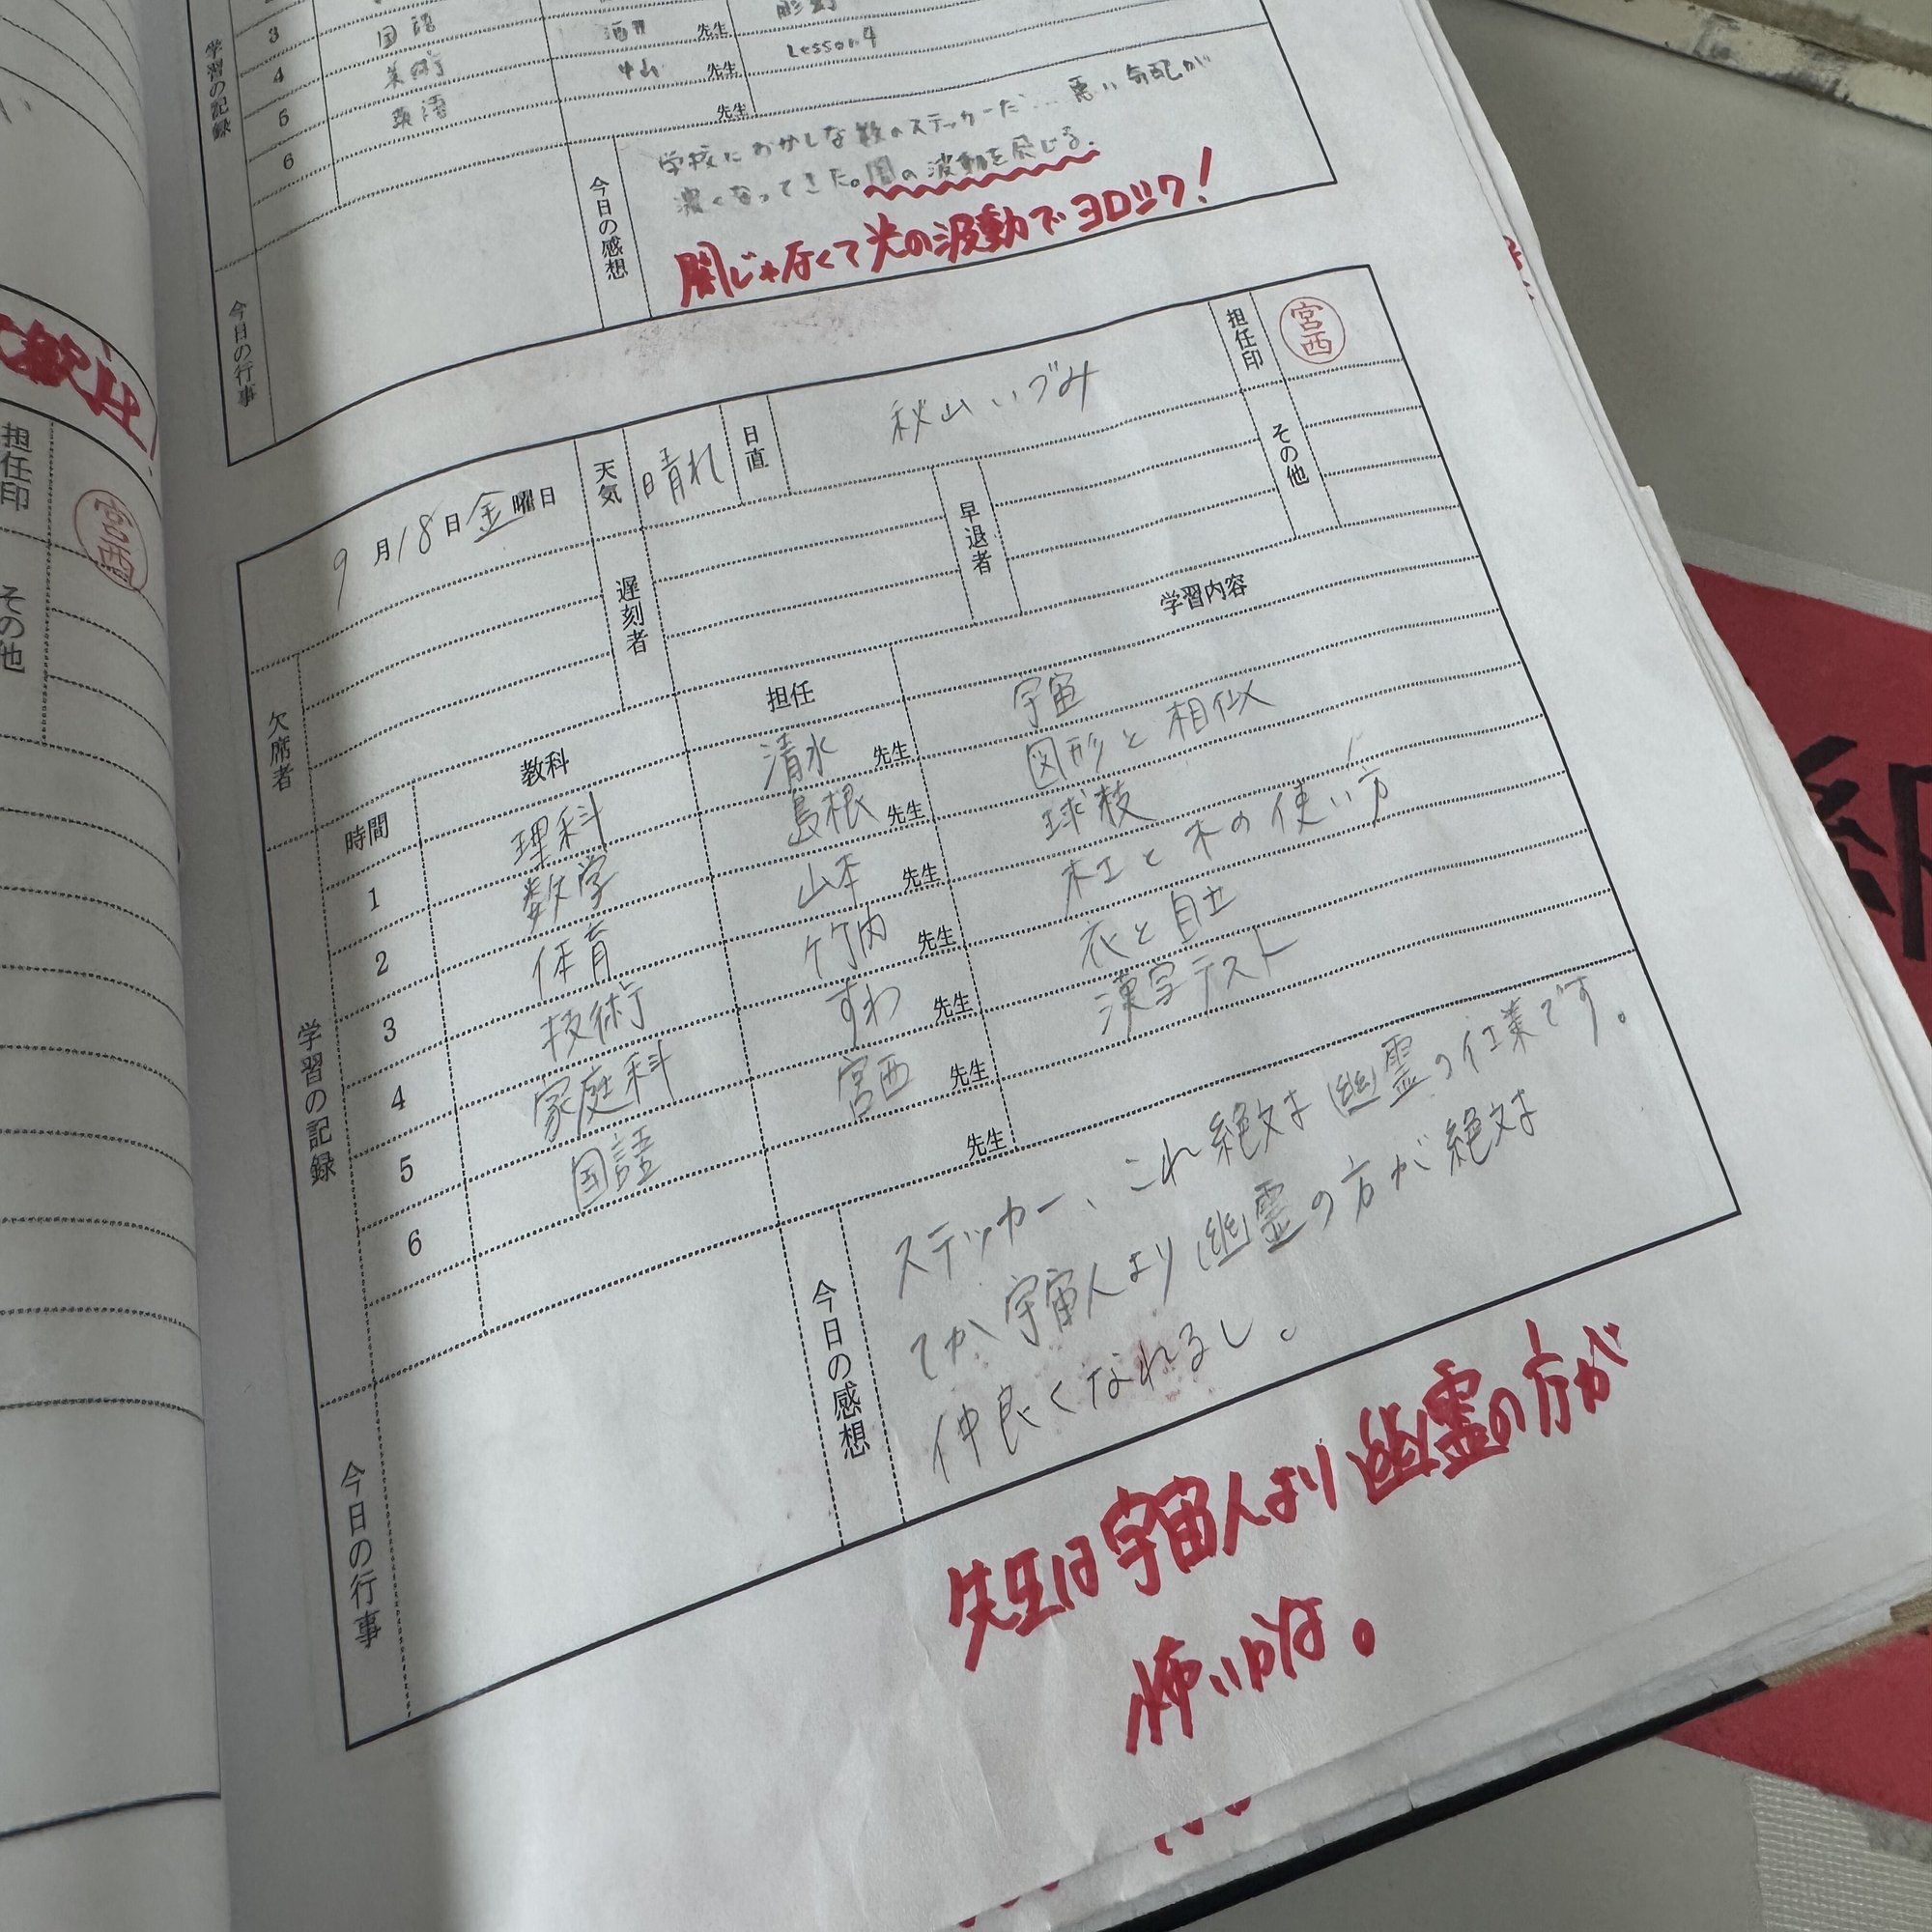 学習の記録
3 国語 先生
4 美術 中山 先生 Lesson 4
5 英語 先生
6
今日の感想
学校におかしな数のステッカーだ… 悪い気配が
濃くなってきた。闇の波動を感じる。
闇じゃなくて光の波動でヨロシク!
今日の行事
担任印
宮西
その他
9月18日金曜日 天気 晴れ 日直 秋山いづみ 担任印 宮西
欠席者 遅刻者 早退者 その他
学習の記録
時間 教科 担任 学習内容
1 理科 清水 先生 宇宙
2 数学 島根 先生 図形と相似
3 体育 山本 先生 球技
4 技術 竹内 先生 木工と木の使い方
5 家庭科 すわ 先生 衣と自立
6 国語 宮西 先生 漢字テスト
先生
今日の感想
ステッカー、これ絶対幽霊の仕業です。
てか宇宙人より幽霊の方が絶対
仲良くなれるし。
今日の行事
先生は宇宙人より幽霊の方が
怖いわな。